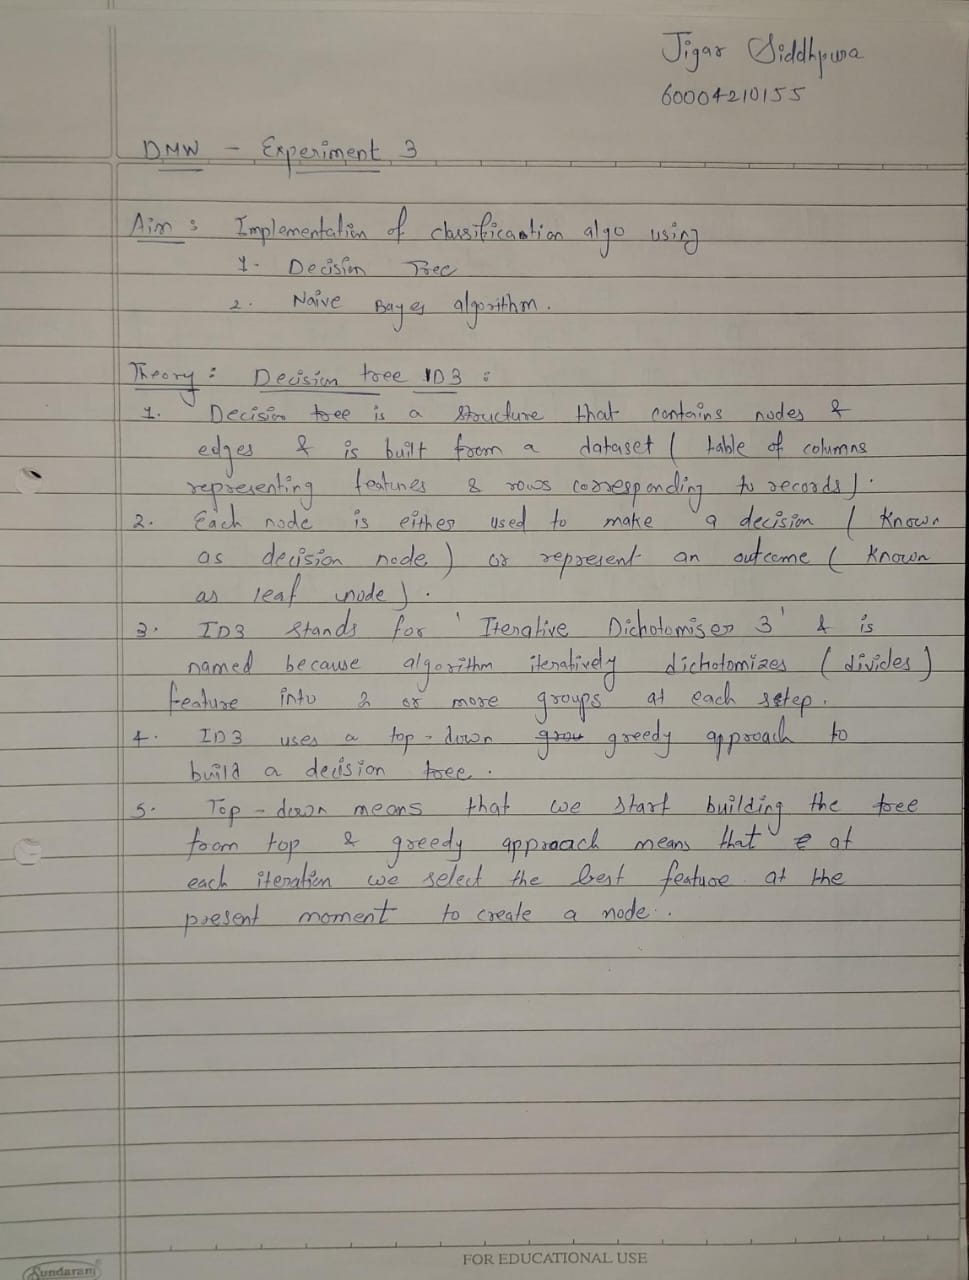 Jigar Siddhpura
60004210155
DMW - Experiment 3
Aim : Implementation of classification algo using
1. Decision Tree
2. Naive Bayes algorithm.
Theory : Decision tree ID3 :
1. Decision tree is a structure that contains nodes &
edges & is built from a dataset ( table of columns
representing features & rows corresponding to records).
2. Each node is either used to make a decision ( known
as decision node ) or represent an outcome ( known
as leaf node ).
3. ID3 stands for ' Iterative Dichotomiser 3 ' & is
named because algorithm iteratively dichotomizes ( divides )
feature into 2 or more groups at each step.
4. ID3 uses a top - down grou greedy approach to
build a decision tree.
5. Top - down means that we start building the tree
from top & greedy approach means that at
each iteration we select the best feature at the
present moment to create a node.
FOR EDUCATIONAL USE
Sundaram